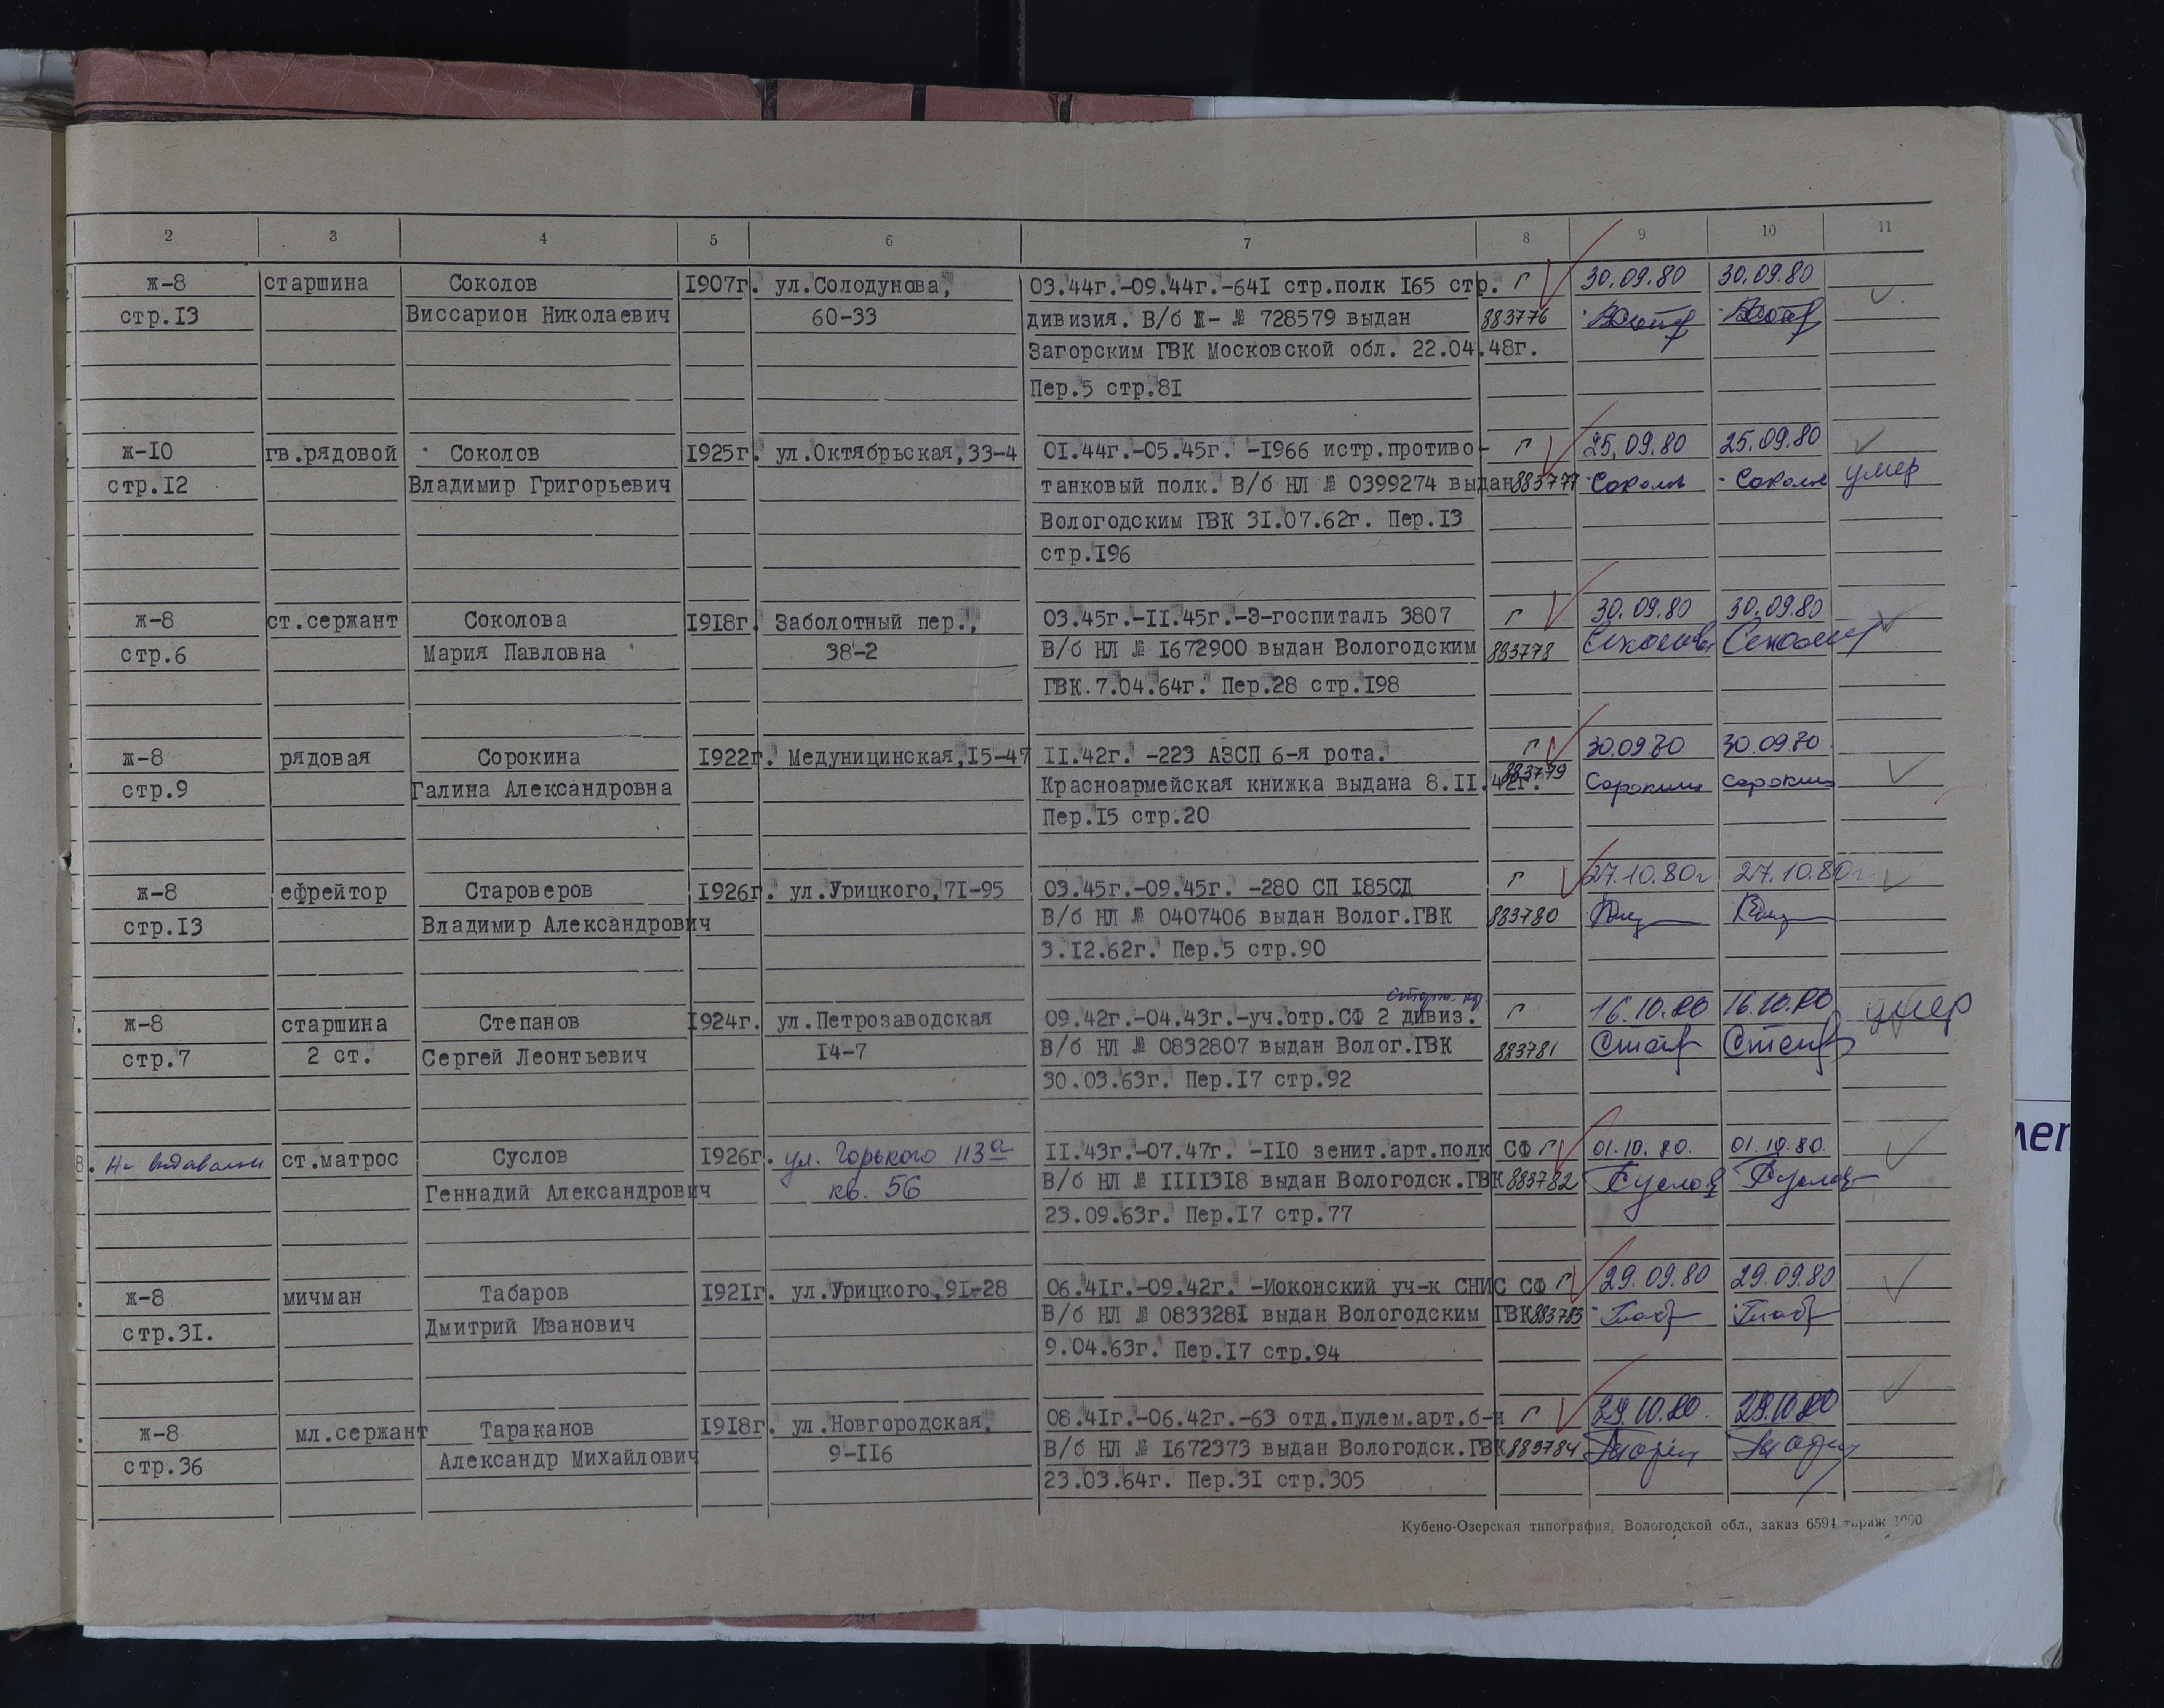 2 3 4 5 6 7 8 9 10 11
ж-8 старшина Соколов 1907г. ул.Солодунова, 03.44г.-09.44г.-641 стр.полк 165 стр. г 30.09.80 30.09.80
стр.13 Виссарион Николаевич 60-33 дивизия. В/б Ж- № 728579 выдан 883776
Загорским ГВК Московской обл. 22.04.48г.
Пер.5 стр.81
ж-10 гв.рядовой Соколов 1925г. ул.Октябрьская,33-4 01.44г.-05.45г. -1966 истр.противо- г 25.09.80 25.09.80
стр.12 Владимир Григорьевич танковый полк. В/б НЛ № 0399274 выдан 883777 Соколов Соколов умер
Вологодским ГВК 31.07.62г. Пер.13
стр.196
ж-8 ст.сержант Соколова 1918г. Заболотный пер., 03.45г.-11.45г.-Э-госпиталь 3807 г 30.09.80 30.09.80
стр.6 Мария Павловна 38-2 В/б НЛ № 1672900 выдан Вологодским 883778
ГВК.7.04.64г. Пер.28 стр.198
ж-8 рядовая Сорокина 1922г. Медуницинская,15-47 11.42г. -223 АЗСП 6-я рота. г 30.09.80 30.09.80
стр.9 Галина Александровна Красноармейская книжка выдана 8.11.42г. 883779
Пер.15 стр.20
ж-8 ефрейтор Староверов 1926г. ул.Урицкого,71-95 03.45г.-09.45г. -280 СП 185СД г 27.10.80г 27.10.80г
стр.13 Владимир Александрович В/б НЛ № 0407406 выдан Волог.ГВК 883780
3.12.62г. Пер.5 стр.90
ж-8 старшина Степанов 1924г. ул.Петрозаводская 09.42г.-04.43г.-уч.отр.СФ 2 дивиз. г 16.10.80 16.10.80 умер
стр.7 2 ст. Сергей Леонтьевич 14-7 В/б НЛ № 0832807 выдан Волог.ГВК 883781
30.03.63г. Пер.17 стр.92
8. Не выдавали ст.матрос Суслов 1926г. ул. Горького 113а 11.43г.-07.47г. -110 зенит.арт.полк СФ г 01.10.80. 01.10.80.
Геннадий Александрович кв. 56 В/б НЛ № 1111318 выдан Вологодск.ГВК 883782 Суслов Суслов
23.09.63г. Пер.17 стр.77
ж-8 мичман Табаров 1921г. ул.Урицкого,91-28 06.41г.-09.42г. -Иоконский уч-к СНИС СФ г 29.09.80 29.09.80
стр.31. Дмитрий Иванович В/б НЛ № 0833281 выдан Вологодским ГВК 883783
9.04.63г. Пер.17 стр.94
ж-8 мл.сержант Тараканов 1918г. ул.Новгородская, 08.41г.-06.42г.-63 отд.пулем.арт.б-н г 29.10.80. 29.10.80
стр.36 Александр Михайлович 9-116 В/б НЛ № 1672373 выдан Вологодск.ГВК 883784
23.03.64г. Пер.31 стр.305
Кубено-Озерская типография, Вологодской обл., заказ 6594 тираж